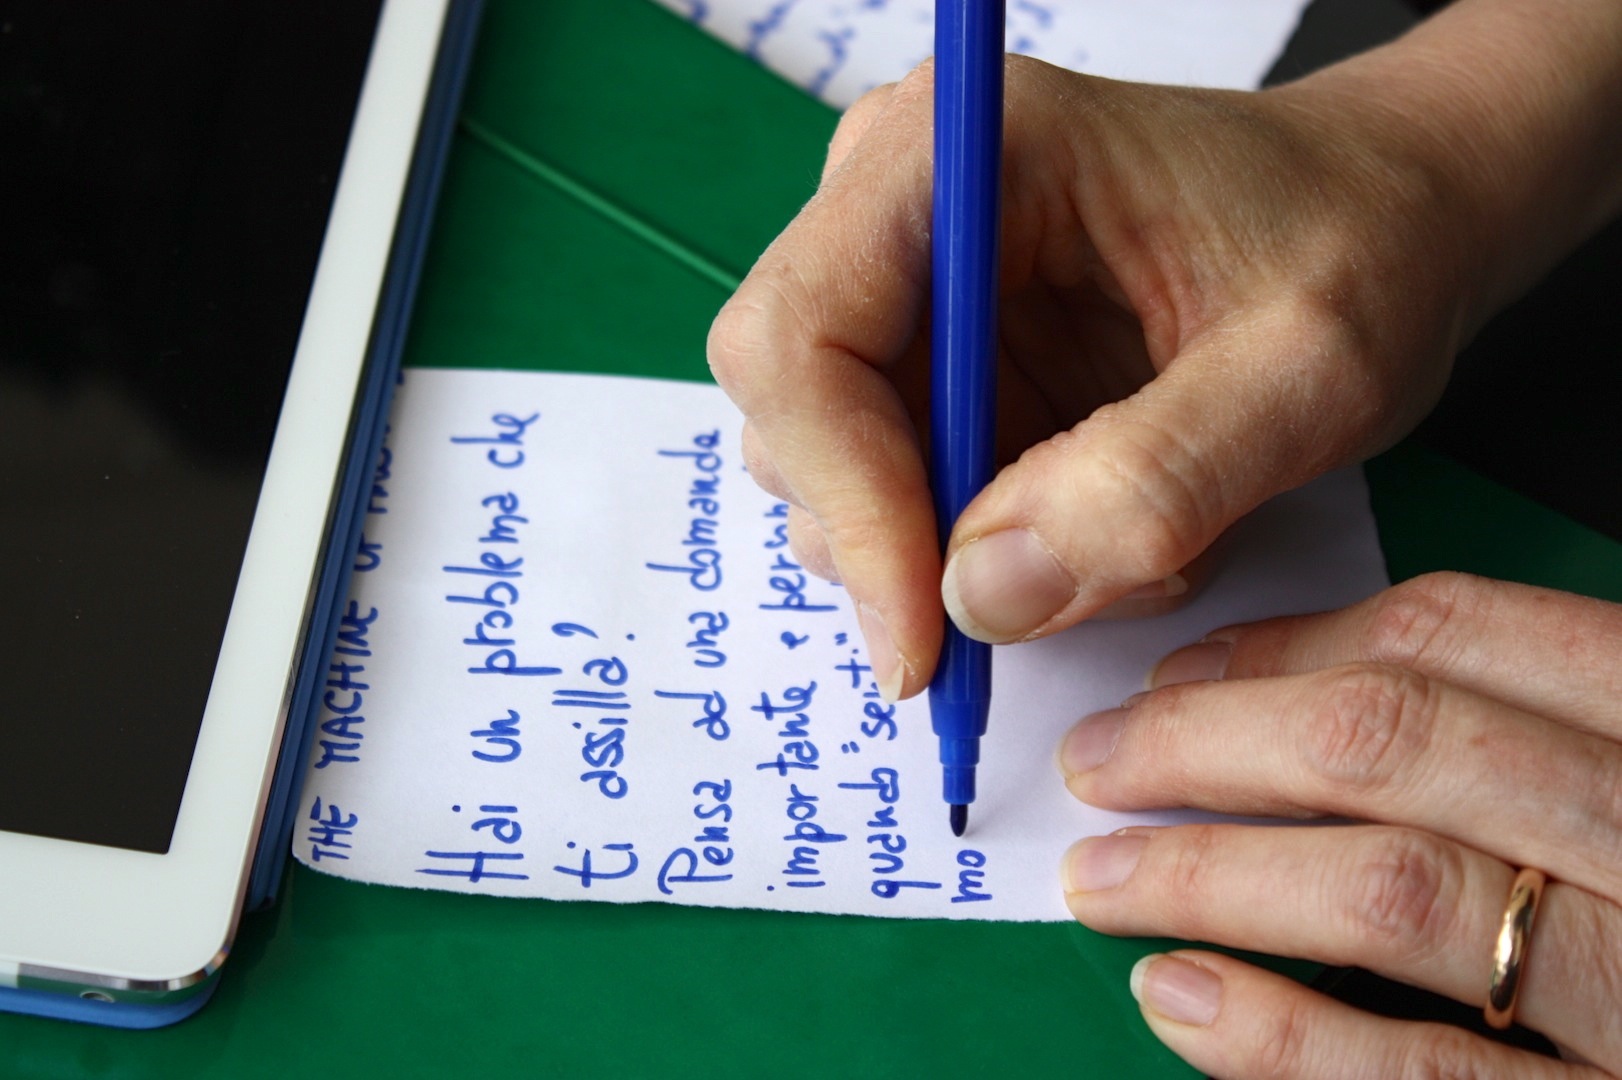 THE MACHINE OF
Hai un problema che
ti assilla?
Pensa ad una domanda
importante e
quando "senti"
mo